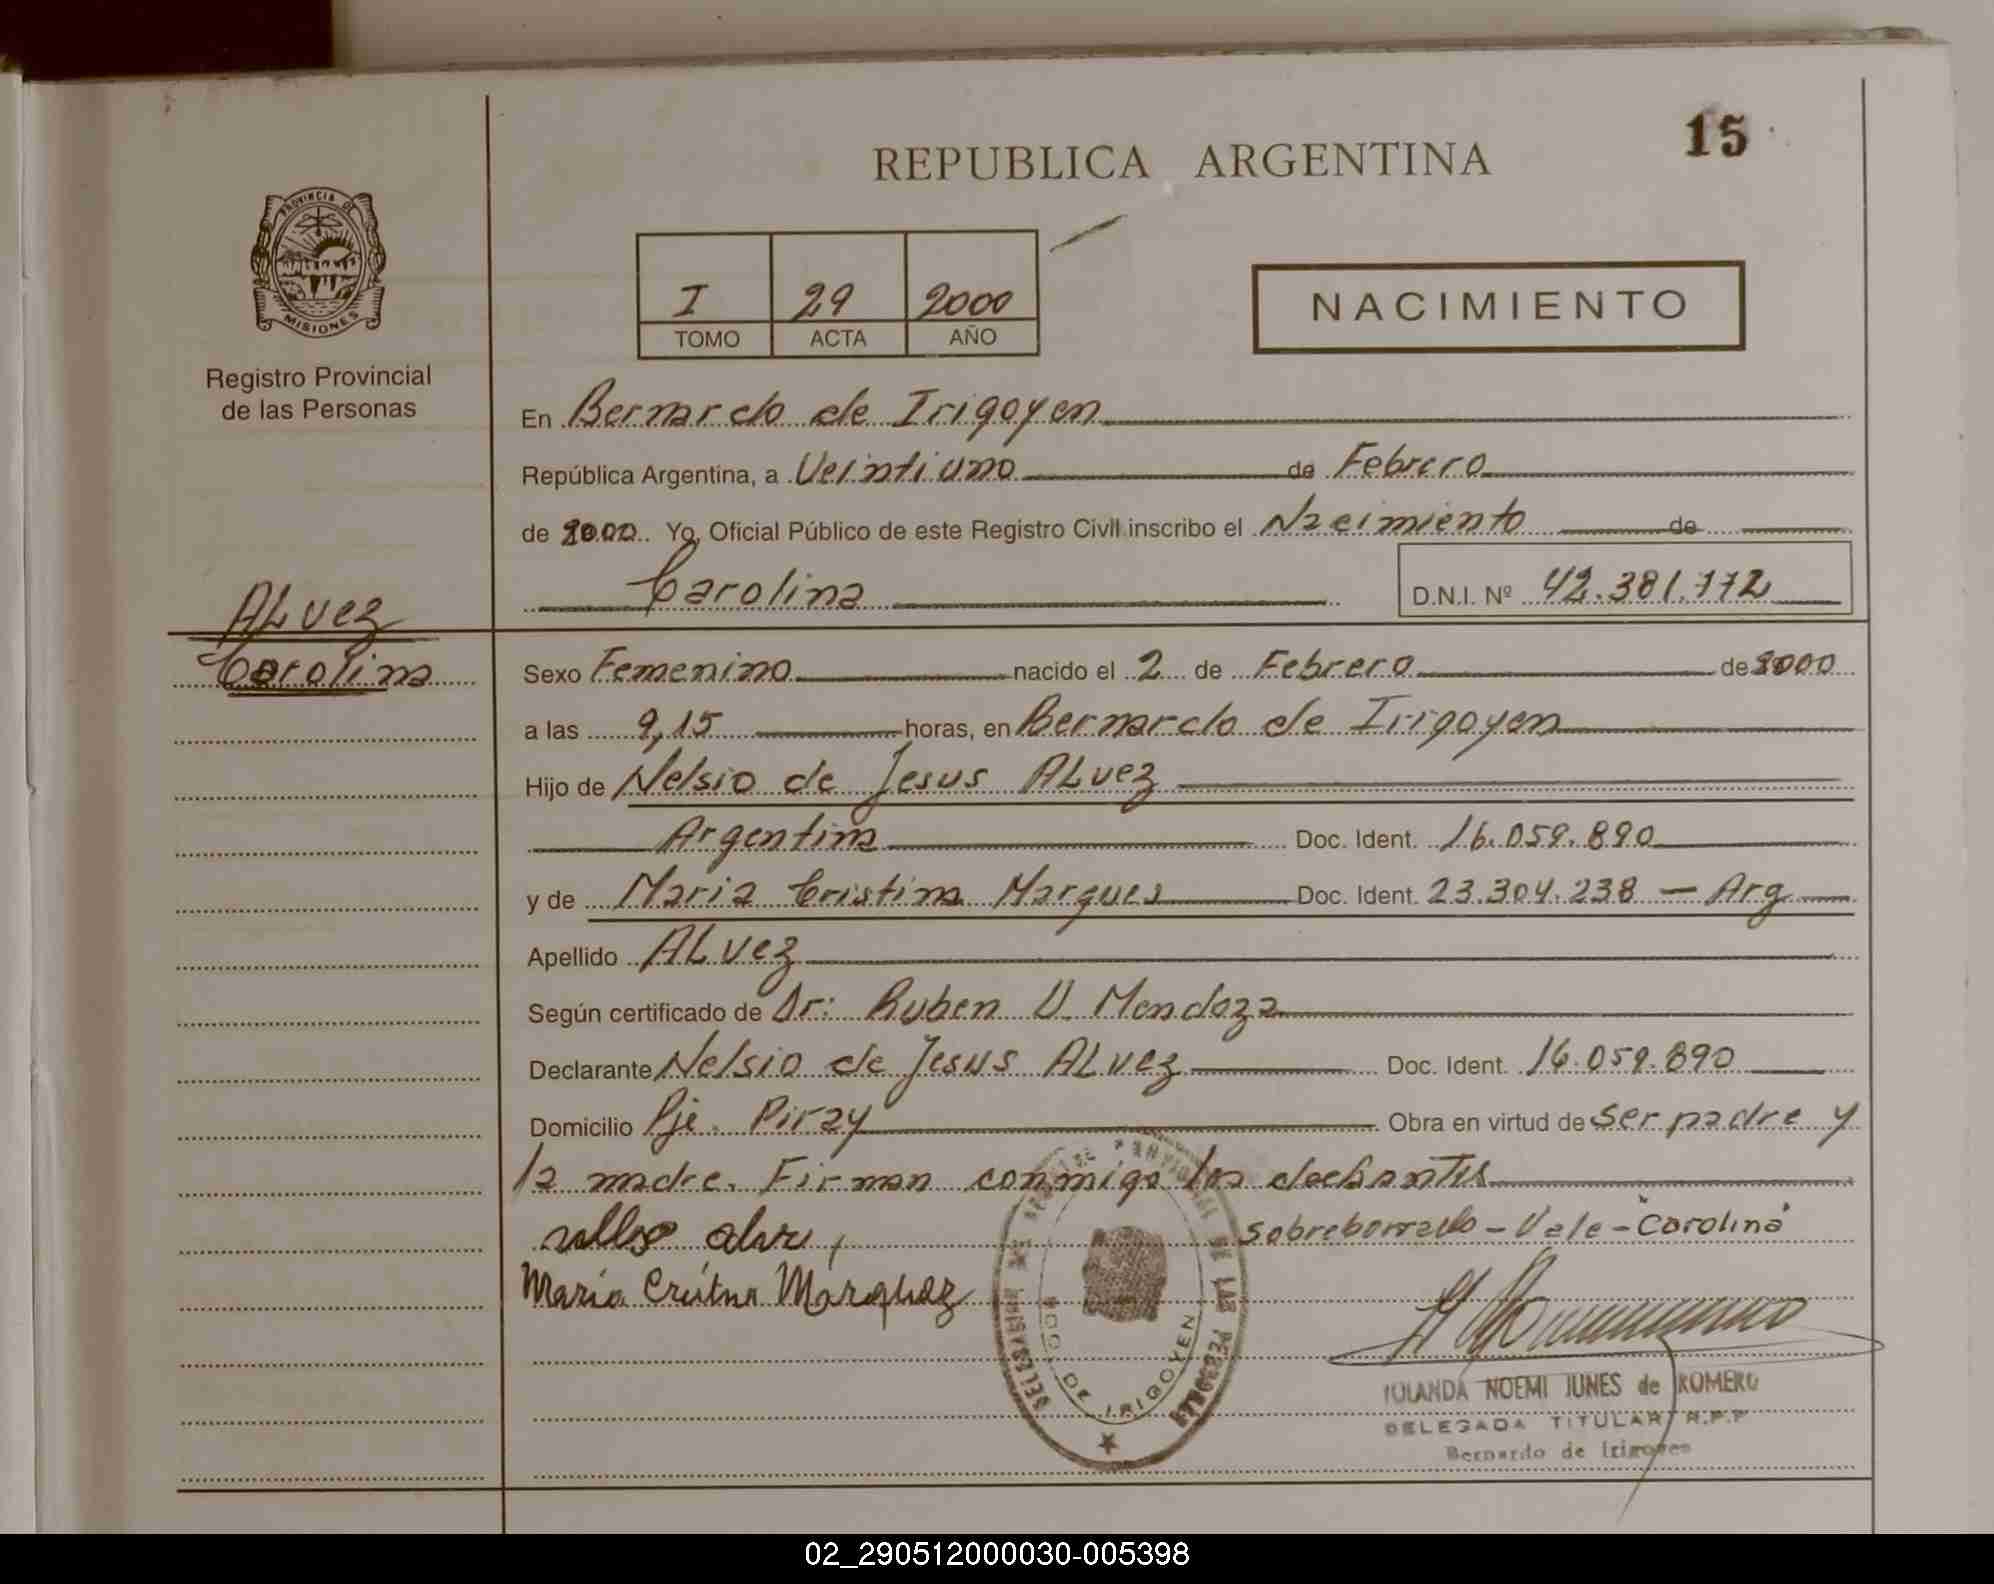 15
REPUBLICA ARGENTINA
PROVINCIA DE
MISIONES
Registro Provincial
de las Personas
I 29 2000
TOMO ACTA AÑO
NACIMIENTO
En Bernardo de Irigoyen
República Argentina, a Veintiuno de Febrero
de 2000 Yo, Oficial Público de este Registro Civil inscribo el Nacimiento de
Carolina D.N.I. Nº 42.381.772
ALvez
Carolina
Sexo Femenino nacido el 2 de Febrero de 2000
a las 9,15 horas, en Bernardo de Irigoyen
Hijo de Nelsio de Jesus ALvez
Argentina Doc. Ident. 16.059.890
y de Maria Cristina Marques Doc. Ident. 23.304.238 - Arg
Apellido ALvez
Según certificado de Dr: Ruben V. Mendoza
Declarante Nelsio de Jesus ALvez Doc. Ident. 16.059.890
Domicilio Pje. Piray Obra en virtud de ser padre y
la madre. Firman conmigo los
Sobreborrado - Vale - "Carolina"
Maria Márquez
BDO. DE IRIGOYEN
DE LAS PERSONAS
YOLANDA NOEMI JUNES de ROMERO
DELEGADA TITULAR R.P.P
Bernardo de Irigoyen
02_290512000030-005398